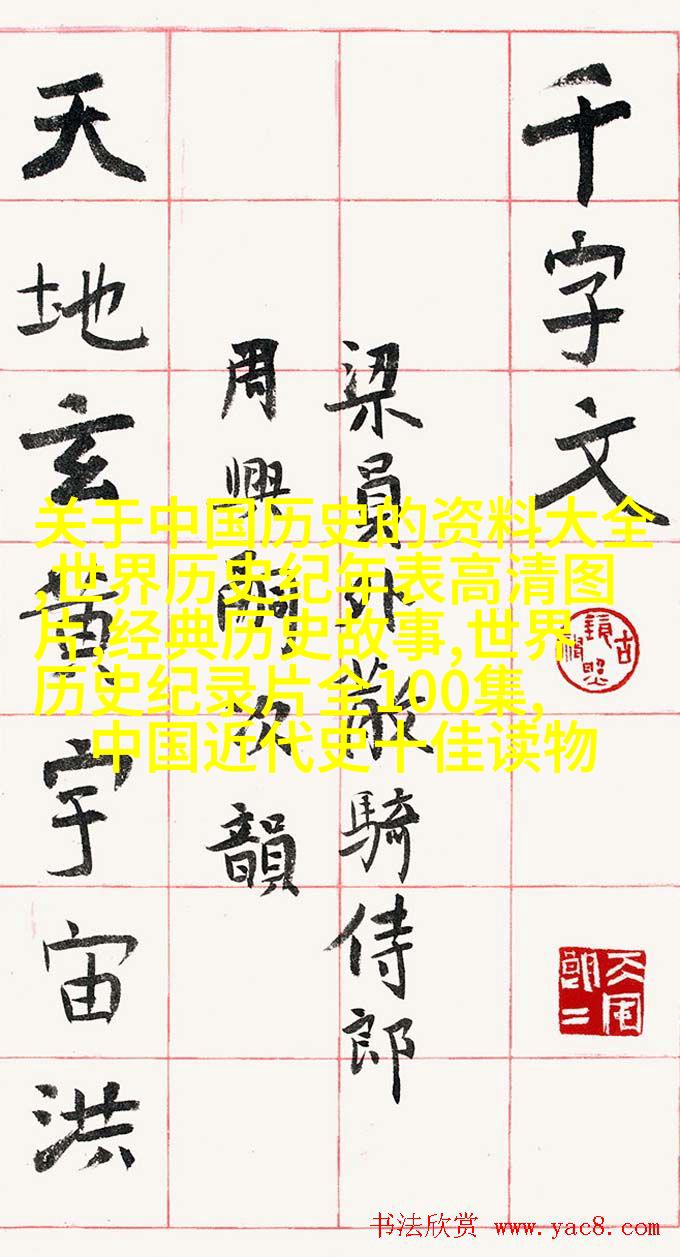 千字文
梁員外散騎侍郎
周興嗣次韻
天地玄黄宇宙洪
关于中国历史的资料大全
,世界历史纪年表高清图
片,经典历史故事,世界
历史纪录片全100集,
中国近代史十佳读物
书法欣赏 www.yac8.com